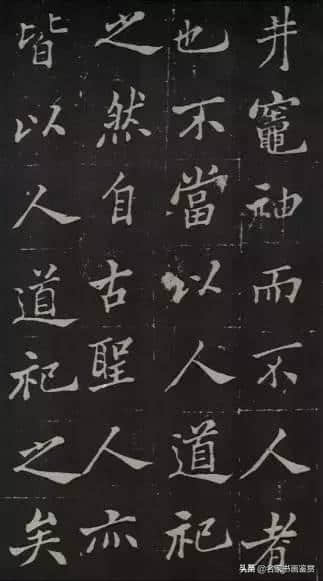 井竈神而不人者
也不當以人道祀
之然自古聖人亦
皆以人道祀之矣
头条 @名家书画鉴赏